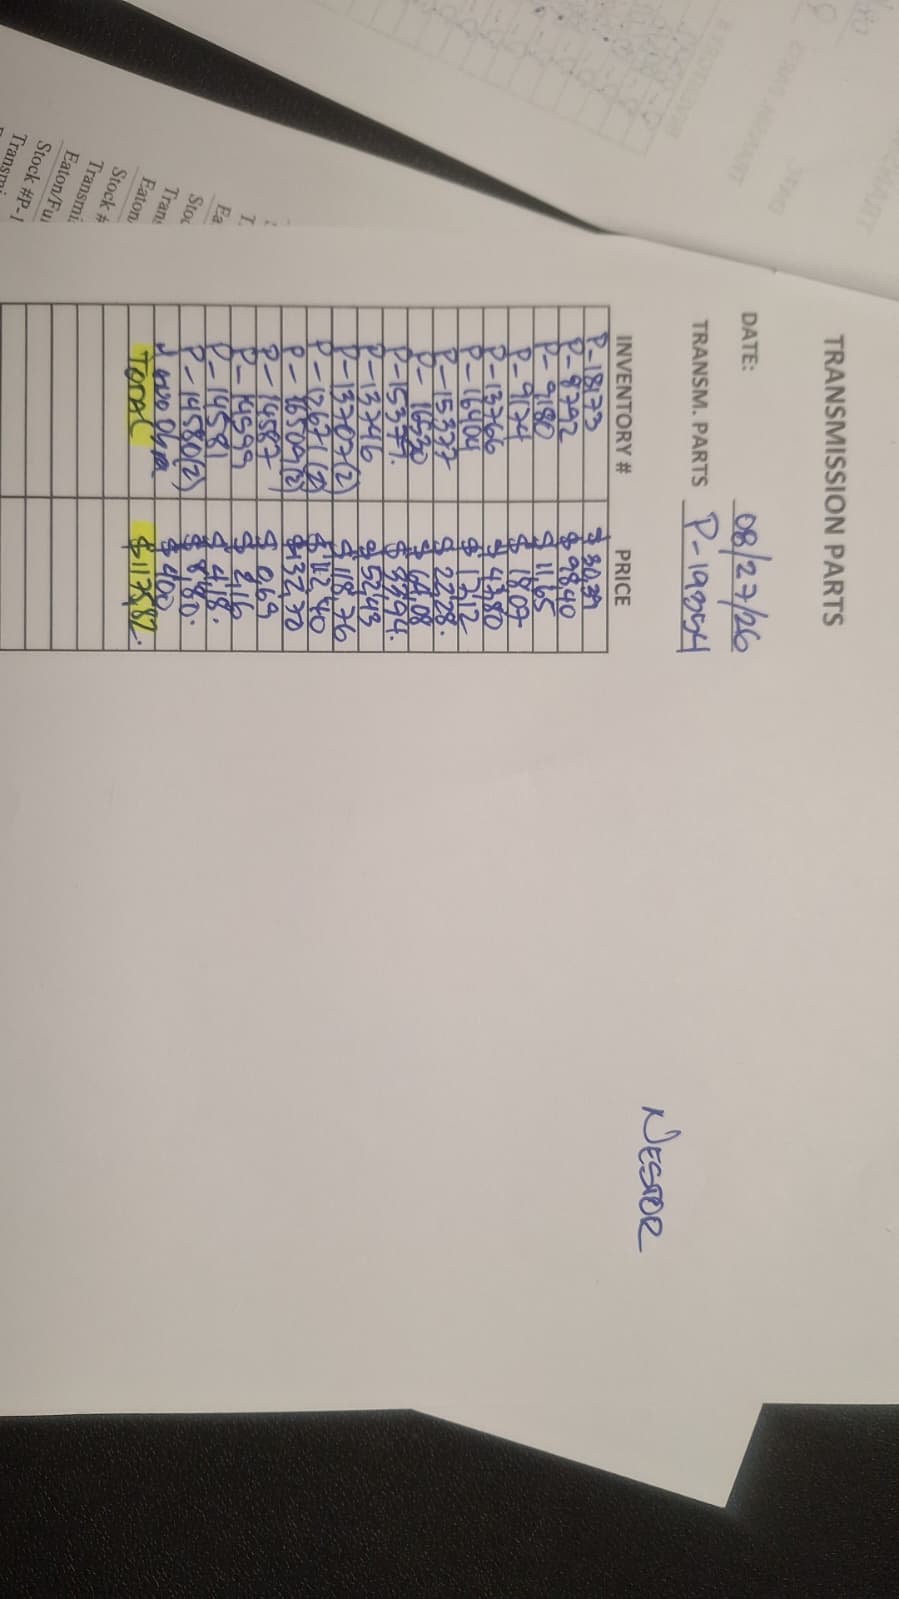 TRANSMISSION PARTS
DATE: 08/27/26
TRANSM. PARTS P-19354
NESTOR
INVENTORY # PRICE
P-1873 $30,39
P-8792 $98,40
P-9180 $11,65
P-9174 $18,07
P-13766 $43,80
P-16404 $17,12
P-15377 $22,28.
P-16530 $44,08
P-15379. $87,94.
P-13746 $52,43
P-13707(2) $118,76
P-12671(2) $112,40
P-16509(2) $132,70
P-14587 $0,69
P-14599 $2,16
P-14581 $4,18.
P-14580(2) $8,80.
$400
TOTAL $1175,82.
Stock #P-1
Eaton/Fu
Transmi
Stock #
Eaton
Trans
Stoc
Ea